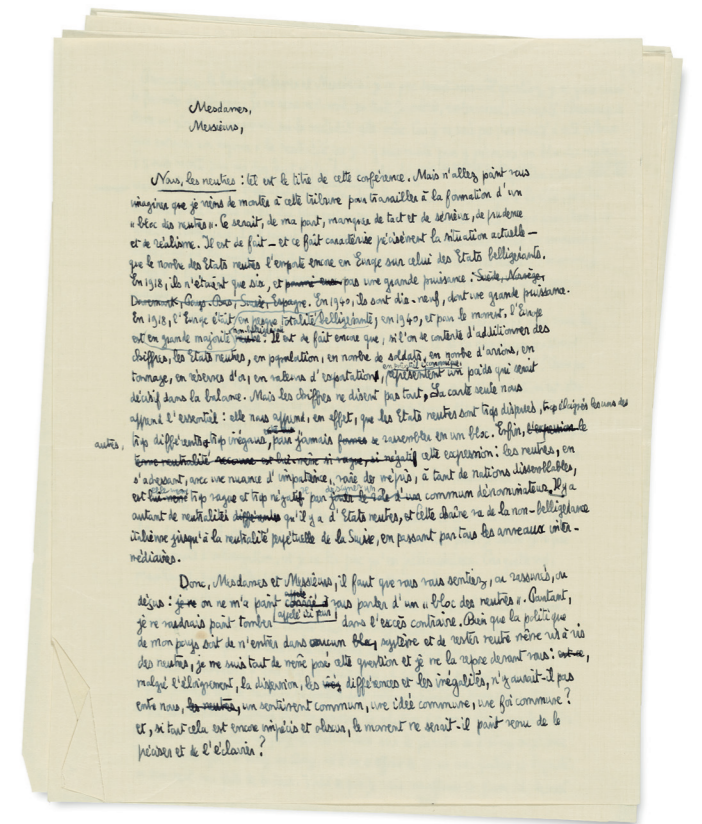 Mesdames,
Messieurs,
Nous, les neutres : tel est le titre de cette conférence. Mais n'allez point vous
imaginer que je viens de monter à cette tribune pour travailler à la formation d'un
« bloc des neutres ». Ce serait, de ma part, manquer de tact et de sérieux, de prudence
et de réalisme. Il est de fait – et ce fait caractérise précisément la situation actuelle –
que le nombre des Etats neutres l'emporte encore en Europe sur celui des Etats belligérants.
En 1918, ils n'étaient que six, et parmi eux pas une grande puissance : Suède, Norvège,
Danemark, Pays-Bas, Suisse, Espagne. En 1940, ils sont dix-neuf, dont une grande puissance.
En 1918, l'Europe était en presque totalité belligérante ; en 1940, et pour le moment, l'Europe
est en grande majorité neutre. Il est de fait encore que, si l'on se contente d'additionner des
chiffres, les Etats neutres, en population, en nombre de soldats, en nombre d'avions, en
tonnage, en réserves d'or, en valeurs d'exportation, en potentiel économique, représentent un poids qui serait
décisif dans la balance. Mais les chiffres ne disent pas tout. La carte seule nous
apprend l'essentiel : elle nous apprend, en effet, que les Etats neutres sont trop dispersés, trop éloignés les uns des
autres, trop différents, trop inégaux, pour jamais se rassembler en un bloc. Enfin, l'expression le
terme neutralité négatif cette expression : les neutres, en
s'adressant, avec une nuance d'impatience, voire de mépris, à tant de nations dissemblables,
est trop vague et trop négatif pour désigner un commun dénominateur. Il y a
autant de neutralités différentes qu'il y a d'Etats neutres, et cette chaîne va de la non-belligérance
italienne jusqu'à la neutralité perpétuelle de la Suisse, en passant par tous les anneaux inter-
médiaires.
Donc, Mesdames et Messieurs, il faut que vous vous sentiez, ou rassurés, ou
déçus : je ne on ne m'a point appelé ici pour vous parler d'un « bloc des neutres ». Pourtant,
je ne voudrais point tomber dans l'excès contraire. Bien que la politique
de mon pays soit de n'entrer dans aucun bloc, système et de rester neutre même vis à vis
des neutres, je me suis tout de même posé cette question et je me la repose devant vous : est-ce,
malgré l'éloignement, la dispersion, les différences et les inégalités, n'y aurait-il pas
entre nous, les neutres, un sentiment commun, une idée commune, une foi commune ?
et, si tout cela est encore imprécis et obscur, le moment ne serait-il point venu de le
préciser et de l'éclaircir ?